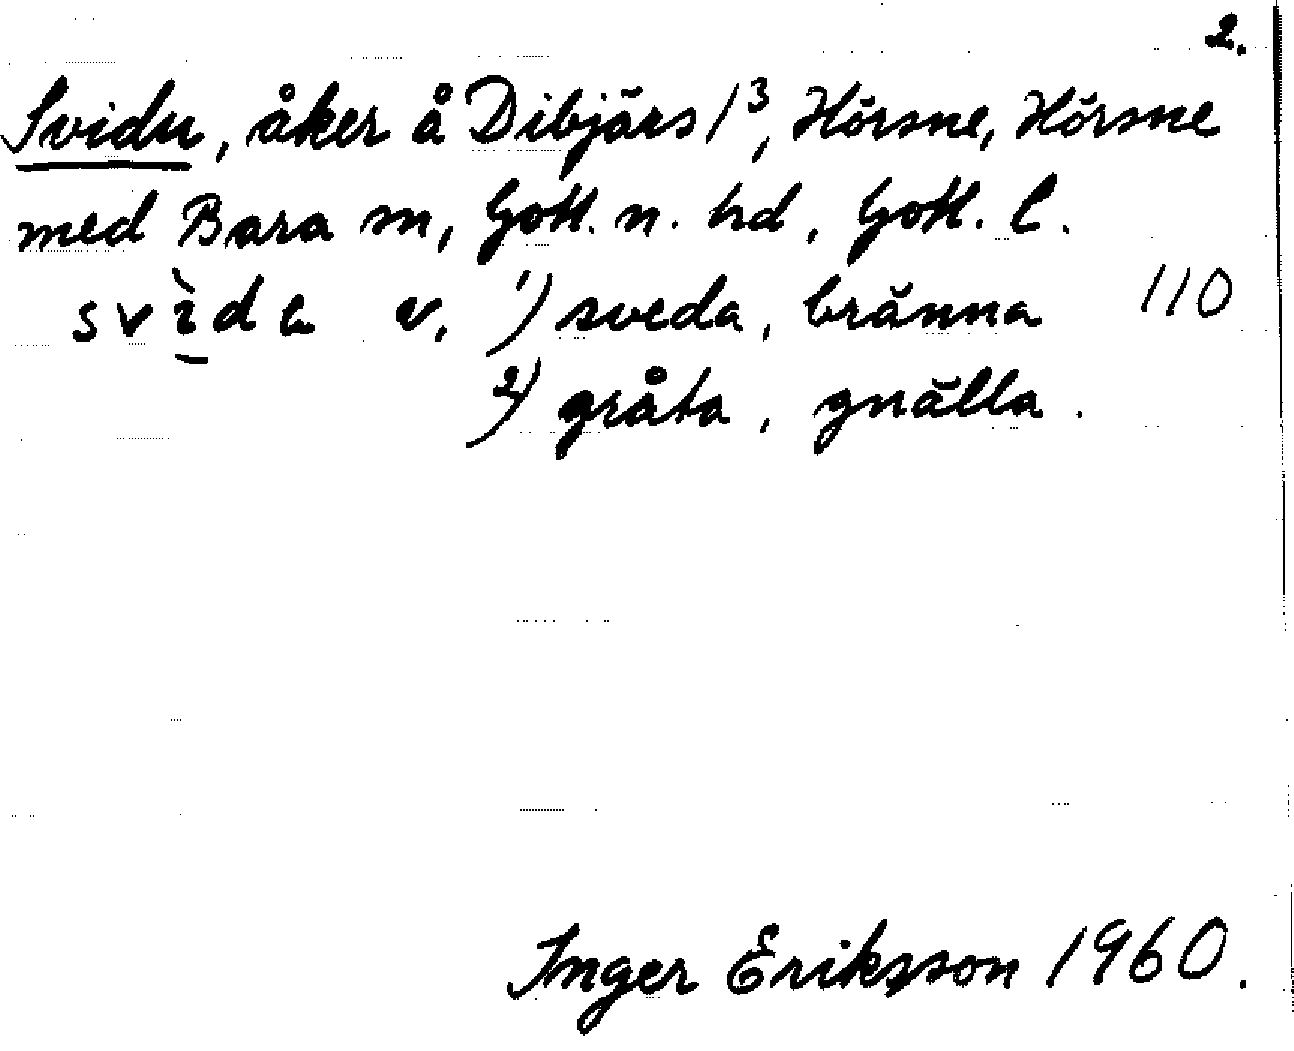 2.
Svidu, åker å Dibjärs 1³, Hörsne, Hörsne
med Bara sn, Gotl. n. hd, Gotl. l.
svìda v. 1) sveda, bränna 110
2) gråta, gnälla.
Inger Eriksson 1960.